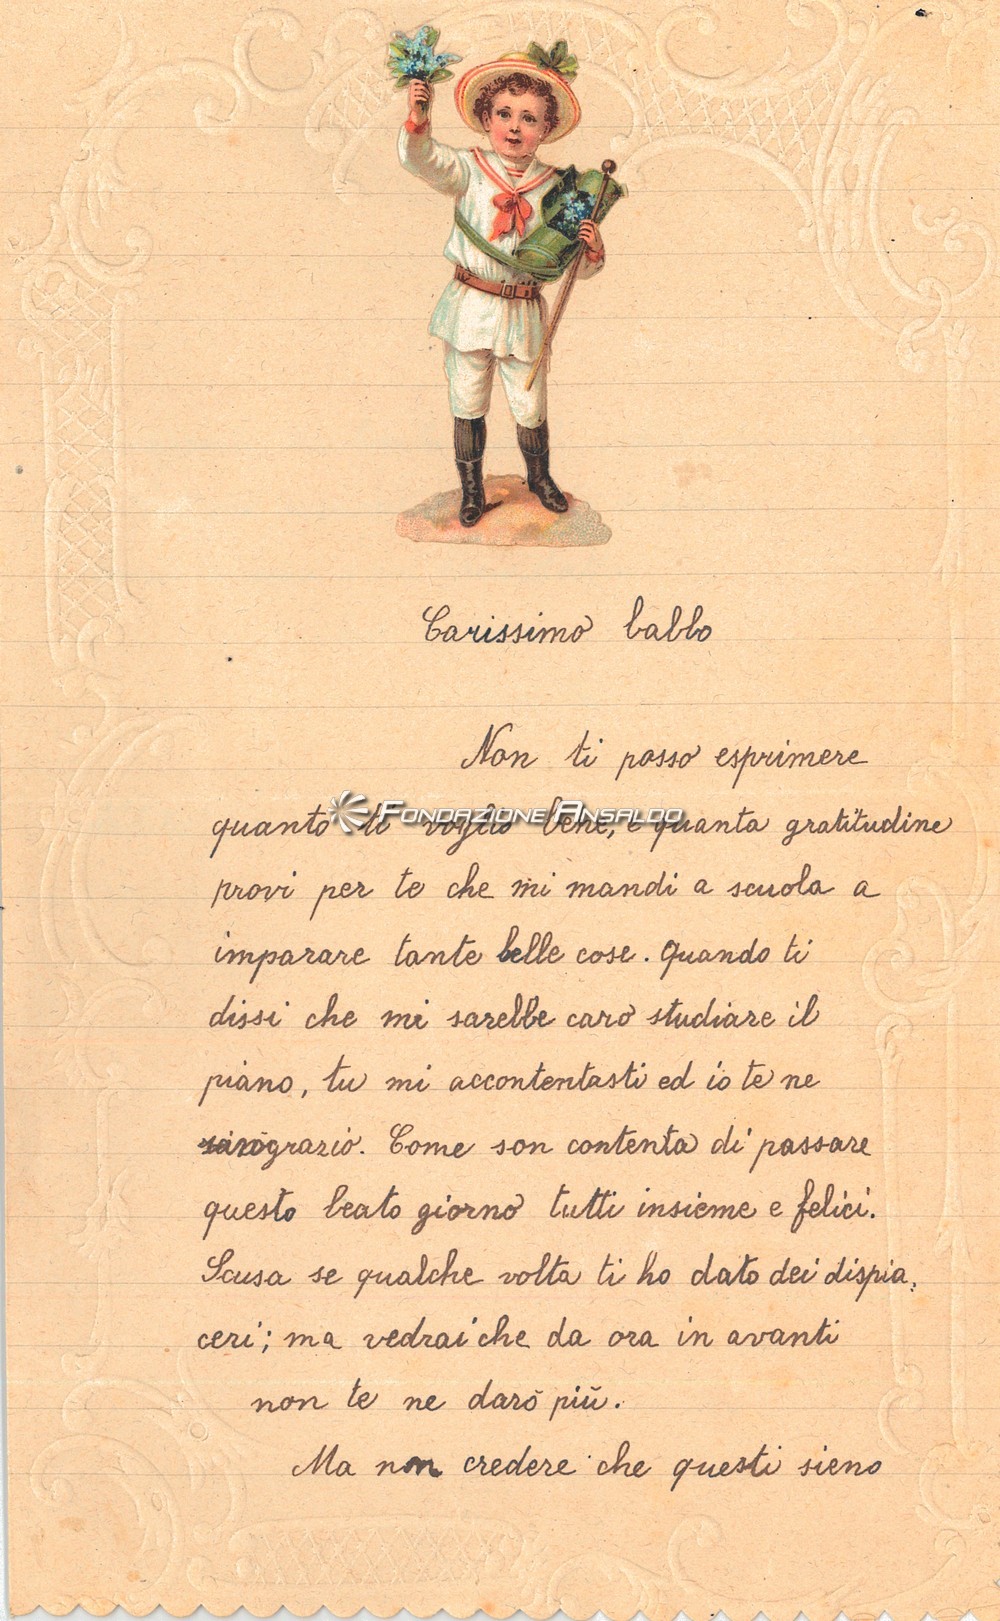 Carissimo babbo
Non ti posso esprimere
FONDAZIONE ANSALDO
quanto ti voglio bene, e quanta gratitudine
provi per te che mi mandi a scuola a
imparare tante belle cose. Quando ti
dissi che mi sarebbe caro studiare il
piano, tu mi accontentasti ed io te ne
ringrazio. Come son contenta di passare
questo beato giorno tutti insieme e felici.
Scusa se qualche volta ti ho dato dei dispia,
ceri; ma vedrai che da ora in avanti
non te ne darò più.
Ma non credere che questi sieno